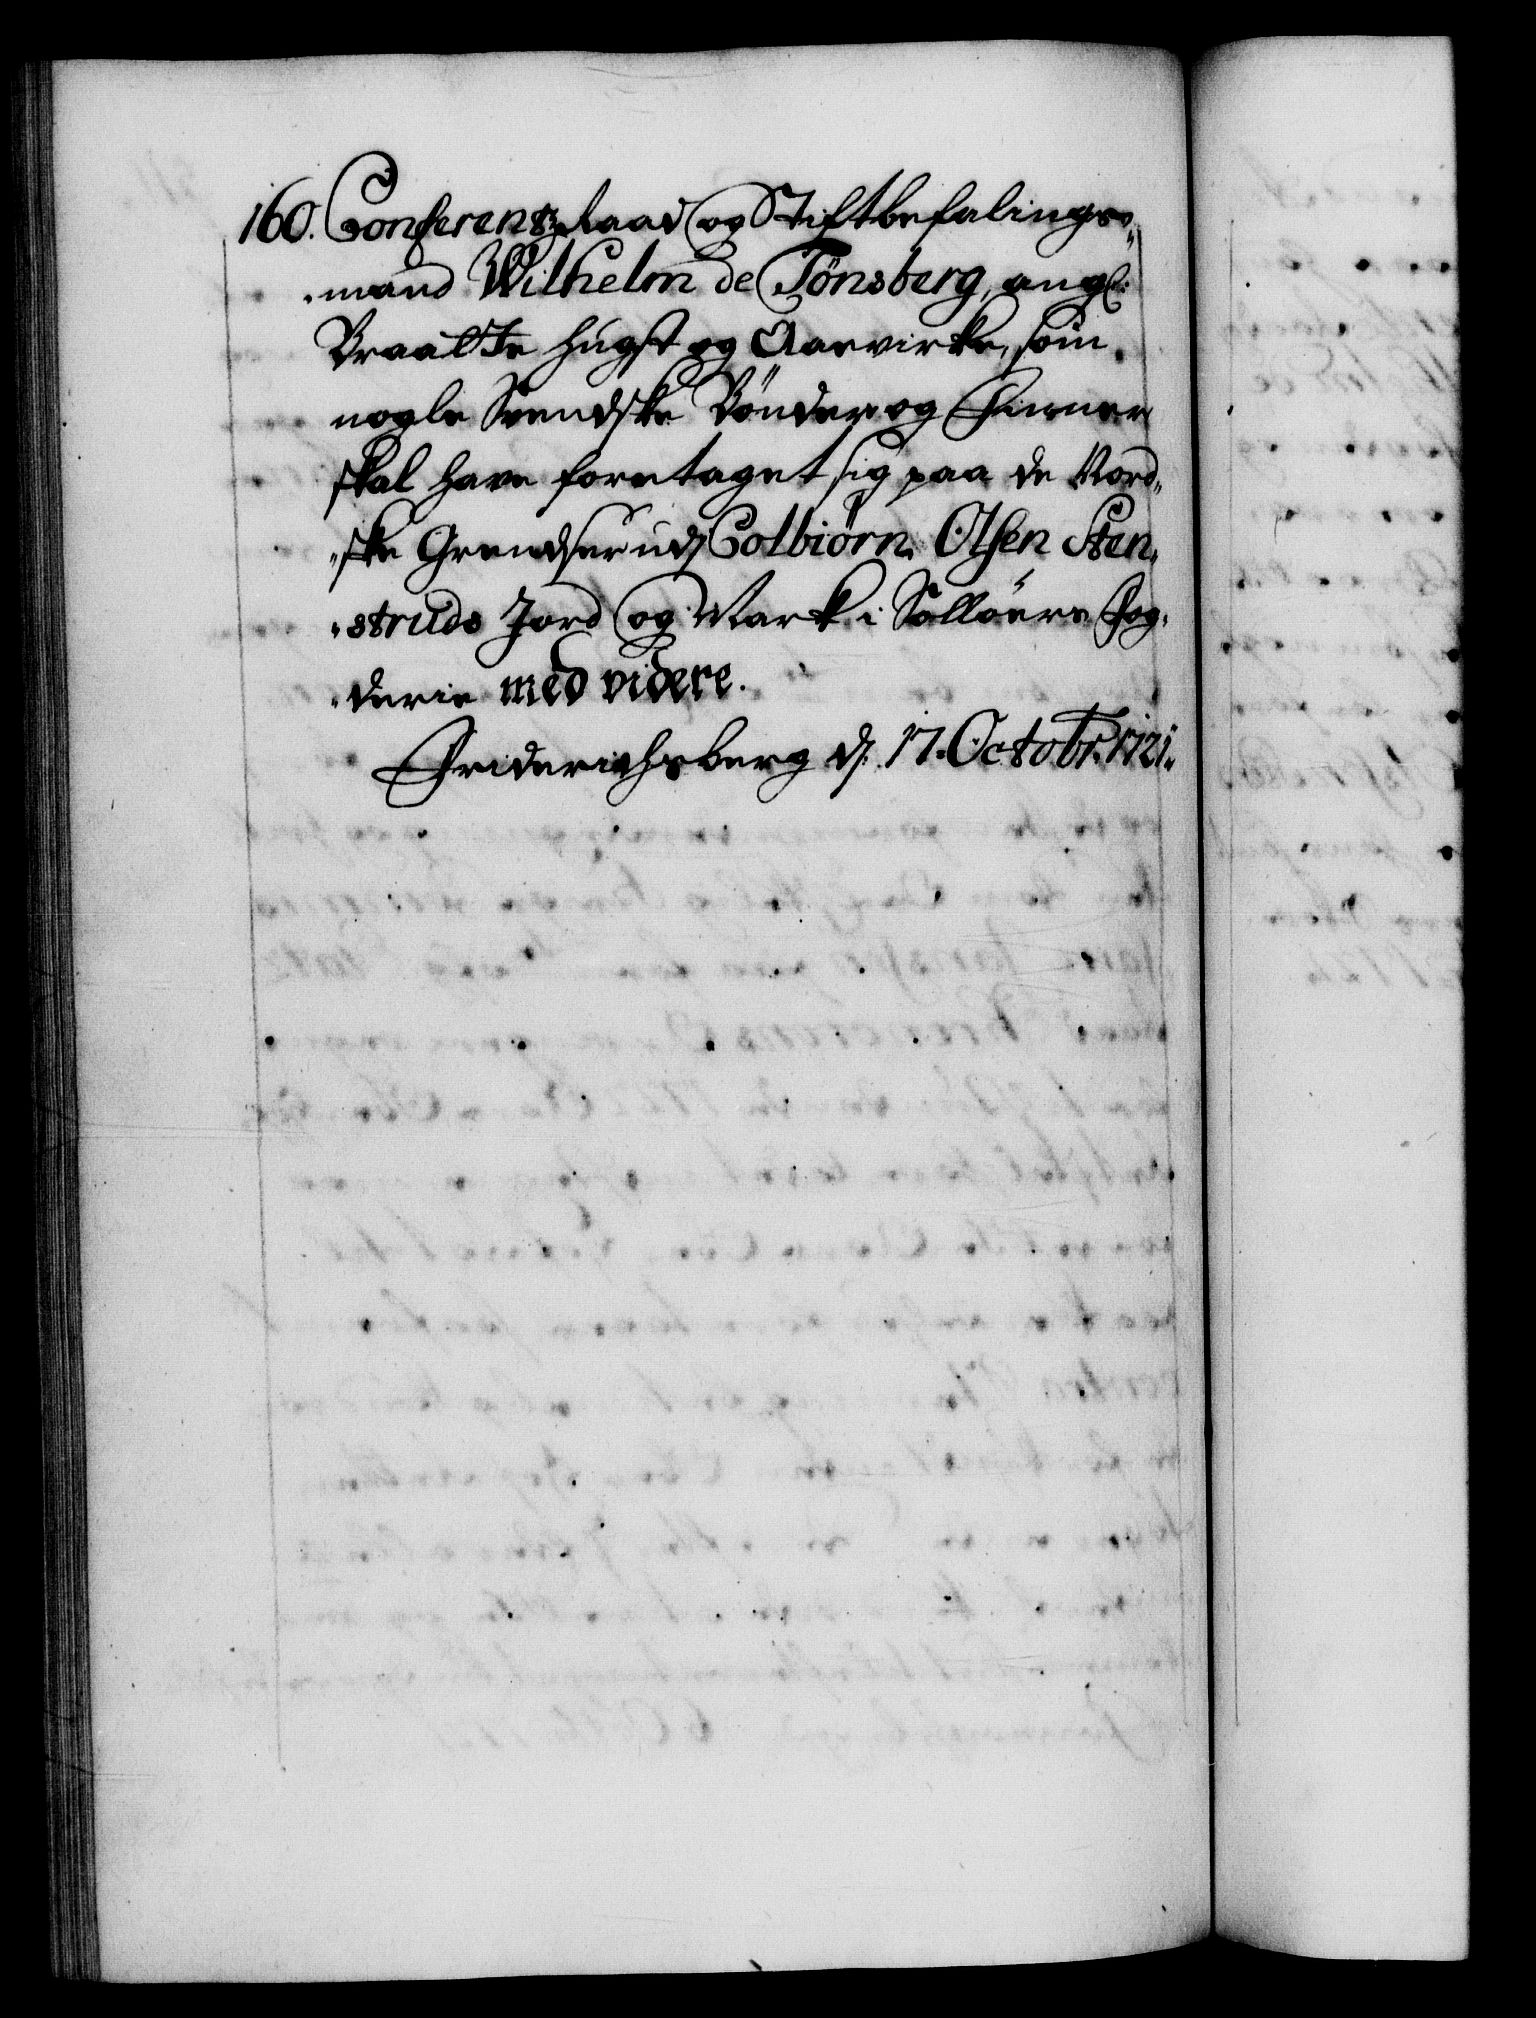 160. Conferentz Raad og Stiftbefalings„
„mand Wilhelm de Tönsberg, angl:
Braatte Hugst og Aarvirke, som
nogle Svendske Bönder og Finner
skal have foretaget sig paa de Nord„
„ske Grendser udj Colbiörn Olsen Sten„
„struds Jord og Mark i Solløers Fog„
„derie med videre.
Friderichsberg d: 17. Octobr: 1721.